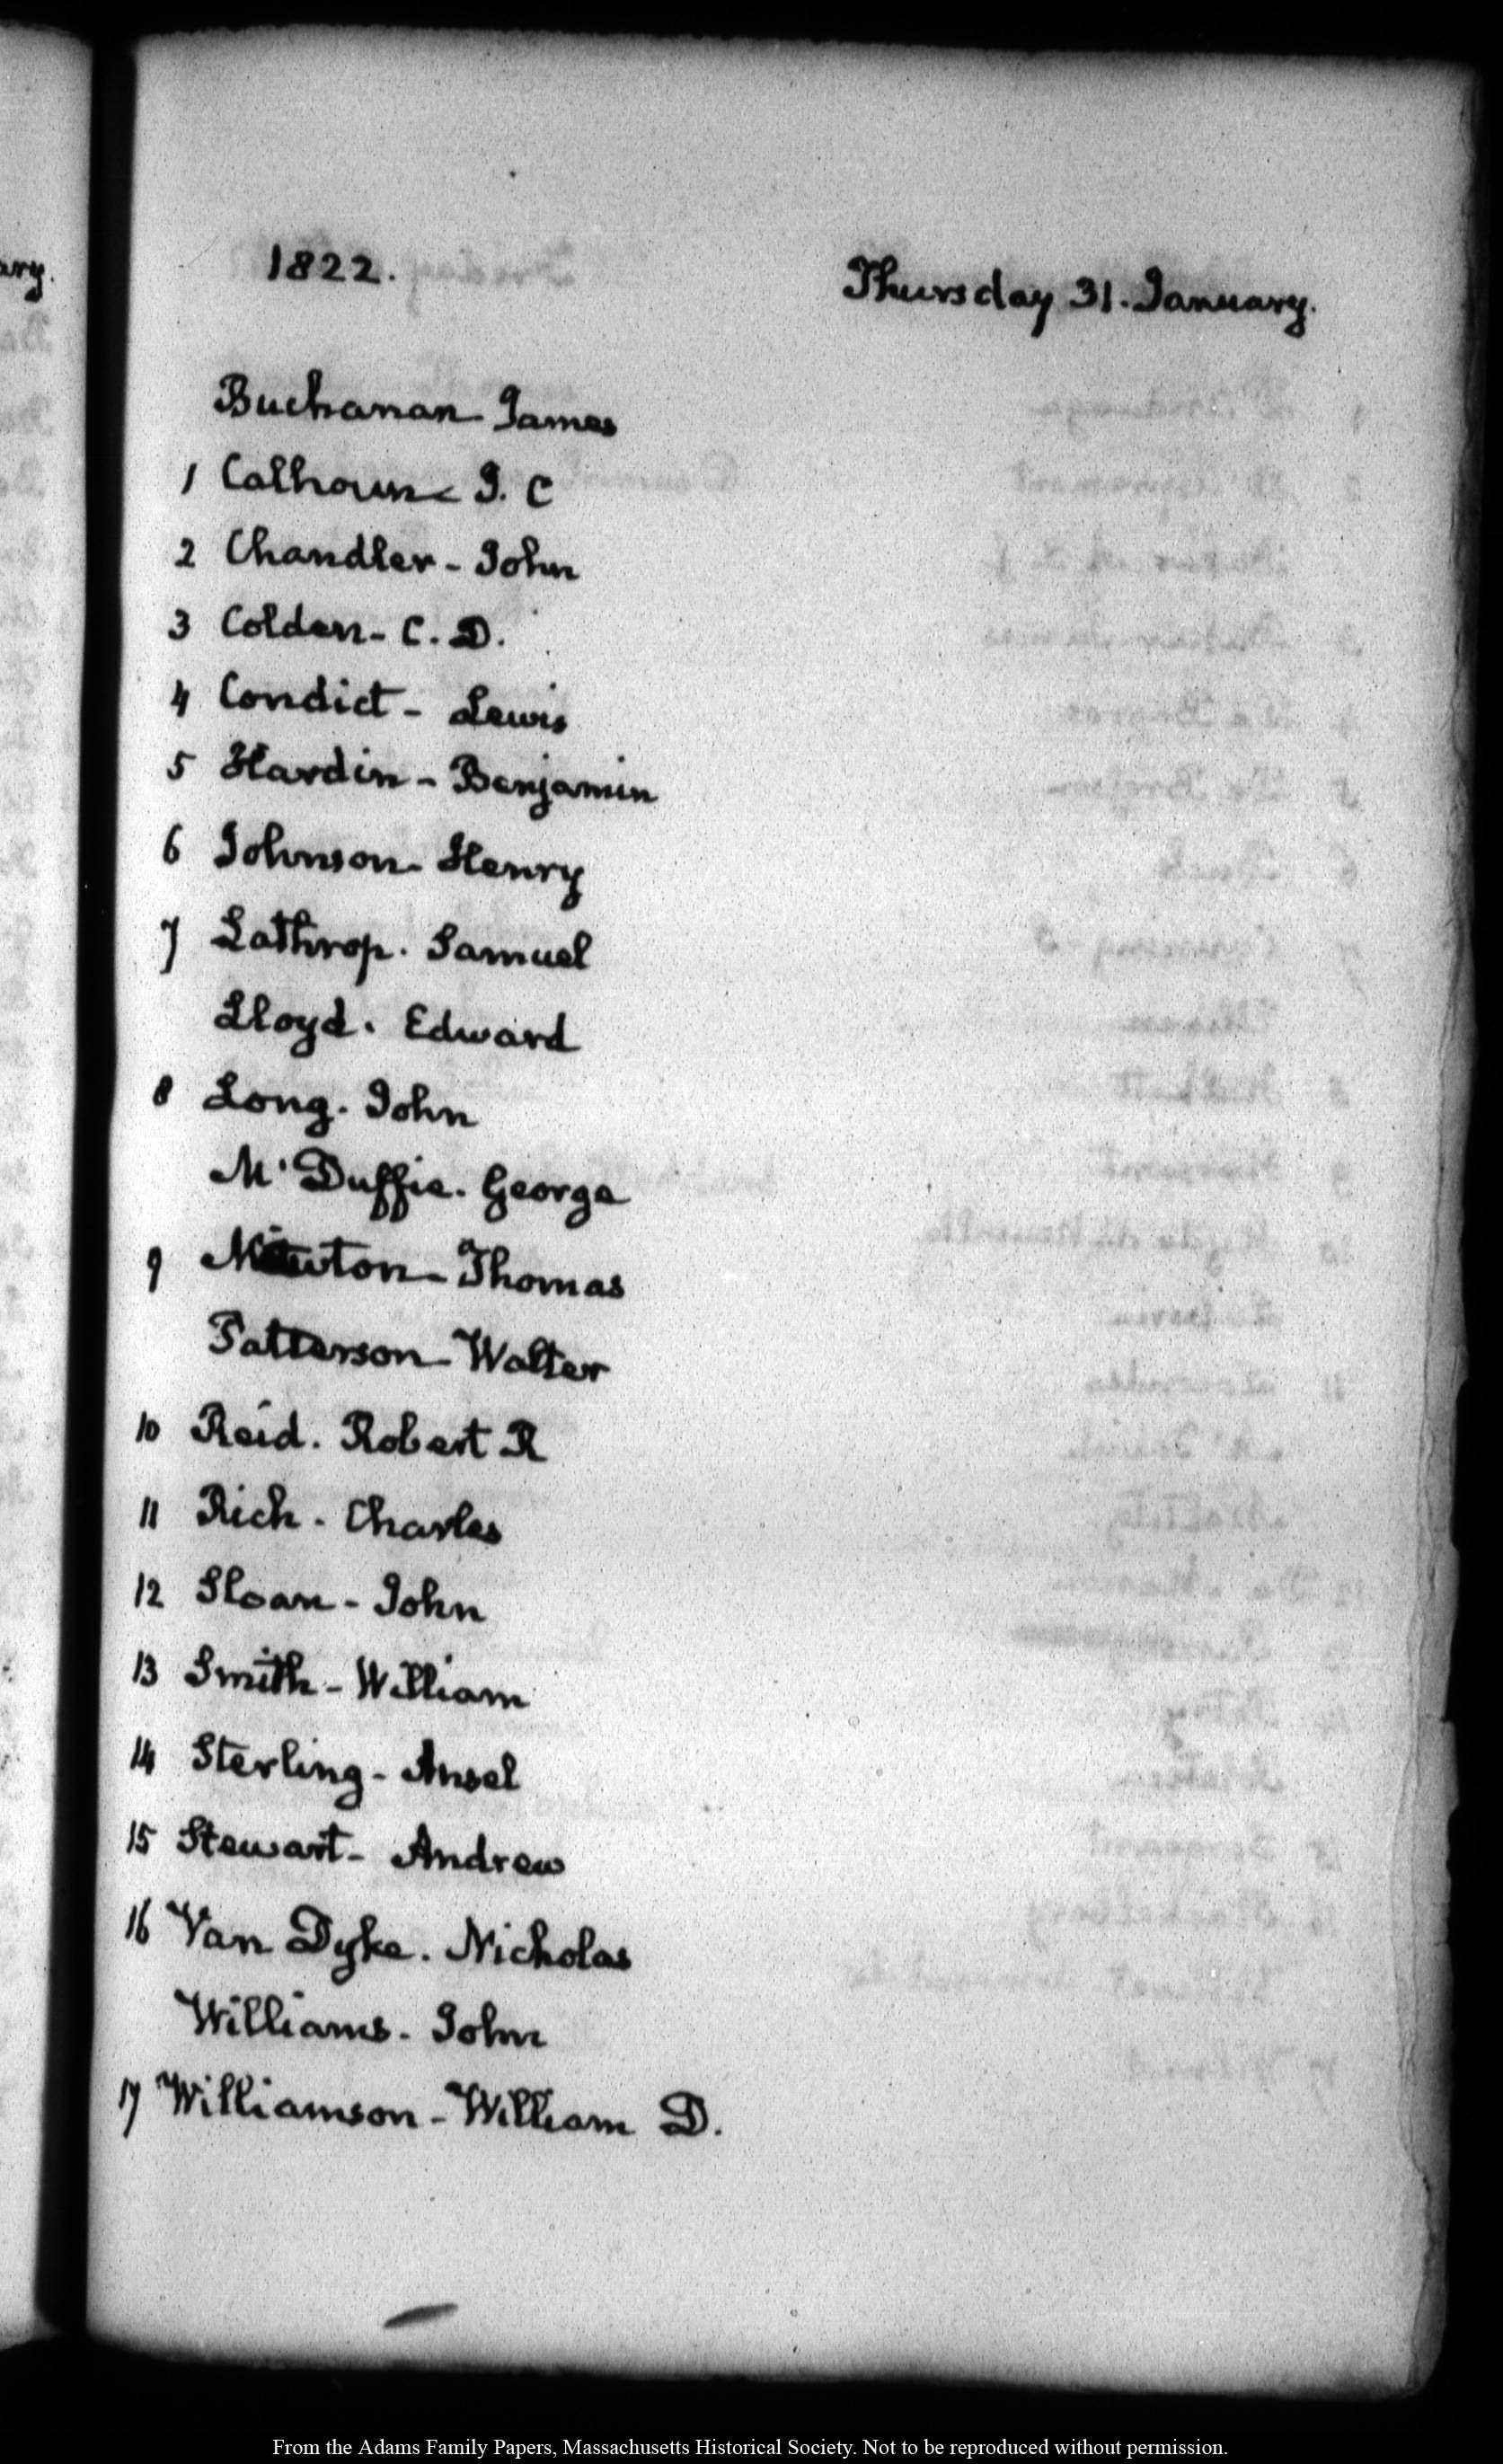 ary.
1822. Thursday 31. January.
Buchanan James
1 Calhoun J. C
2 Chandler - John
3 Colden - C. D.
4 Condict - Lewis
5 Hardin - Benjamin
6 Johnson - Henry
7 Lathrop. Samuel
Lloyd. Edward
8 Long. John
M'Duffie. George
9 Newton - Thomas
Patterson - Walter
10 Reid. Robert R
11 Rich. Charles
12 Sloan - John
13 Smith - William
14 Sterling - Ansel
15 Stewart - Andrew
16 Van Dyke. Nicholas
Williams. John
17 Williamson - William D.
From the Adams Family Papers, Massachusetts Historical Society. Not to be reproduced without permission.